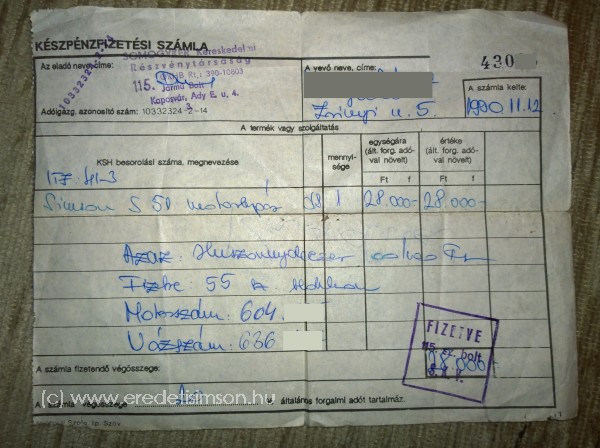 KÉSZPÉNZFIZETÉSI SZÁMLA
SOMOGYKER Kereskedelmi
Részvénytársaság
115.
Kaposvár, Ady E. u. 4.
10332324-2-14
Az eladó neve, címe:
Adóigazg. azonosító szám: 10332324-2-14
A vevő neve, címe:
Zrínyi u. 5.
430
A számla kelte:
1990.11.12
A termék vagy szolgáltatás
KSH besorolási száma, megnevezése
mennyi-
sége
egységára
(ált. forg. adó-
val növelt)
Ft f
értéke
(ált. forg. adó-
val növelt)
Ft f
ITJ: 41-3
Simson S 51 motorkpár 1 28.000- 28.000-
Azaz: Huszonnyolcezer
Fizetve: 55
Motorszám: 604.
Vázszám: 636
FIZETVE
115. sz. bolt
A számla fizetendő végösszege:
A számla végösszege általános forgalmi adót tartalmaz.
(c) www.eredetisimson.hu